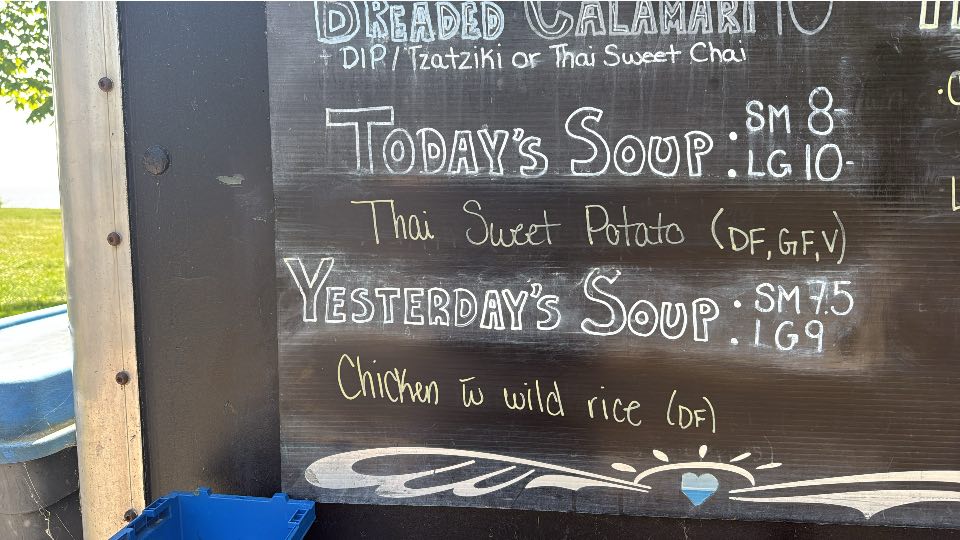 BREADED CALAMARI 10
- DIP/Tzatziki or Thai Sweet Chai
TODAY'S SOUP: SM 8-
LG 10-
Thai Sweet Potato (DF, GF, V)
YESTERDAY'S SOUP: SM 7.5
LG 9
Chicken w wild rice (DF)